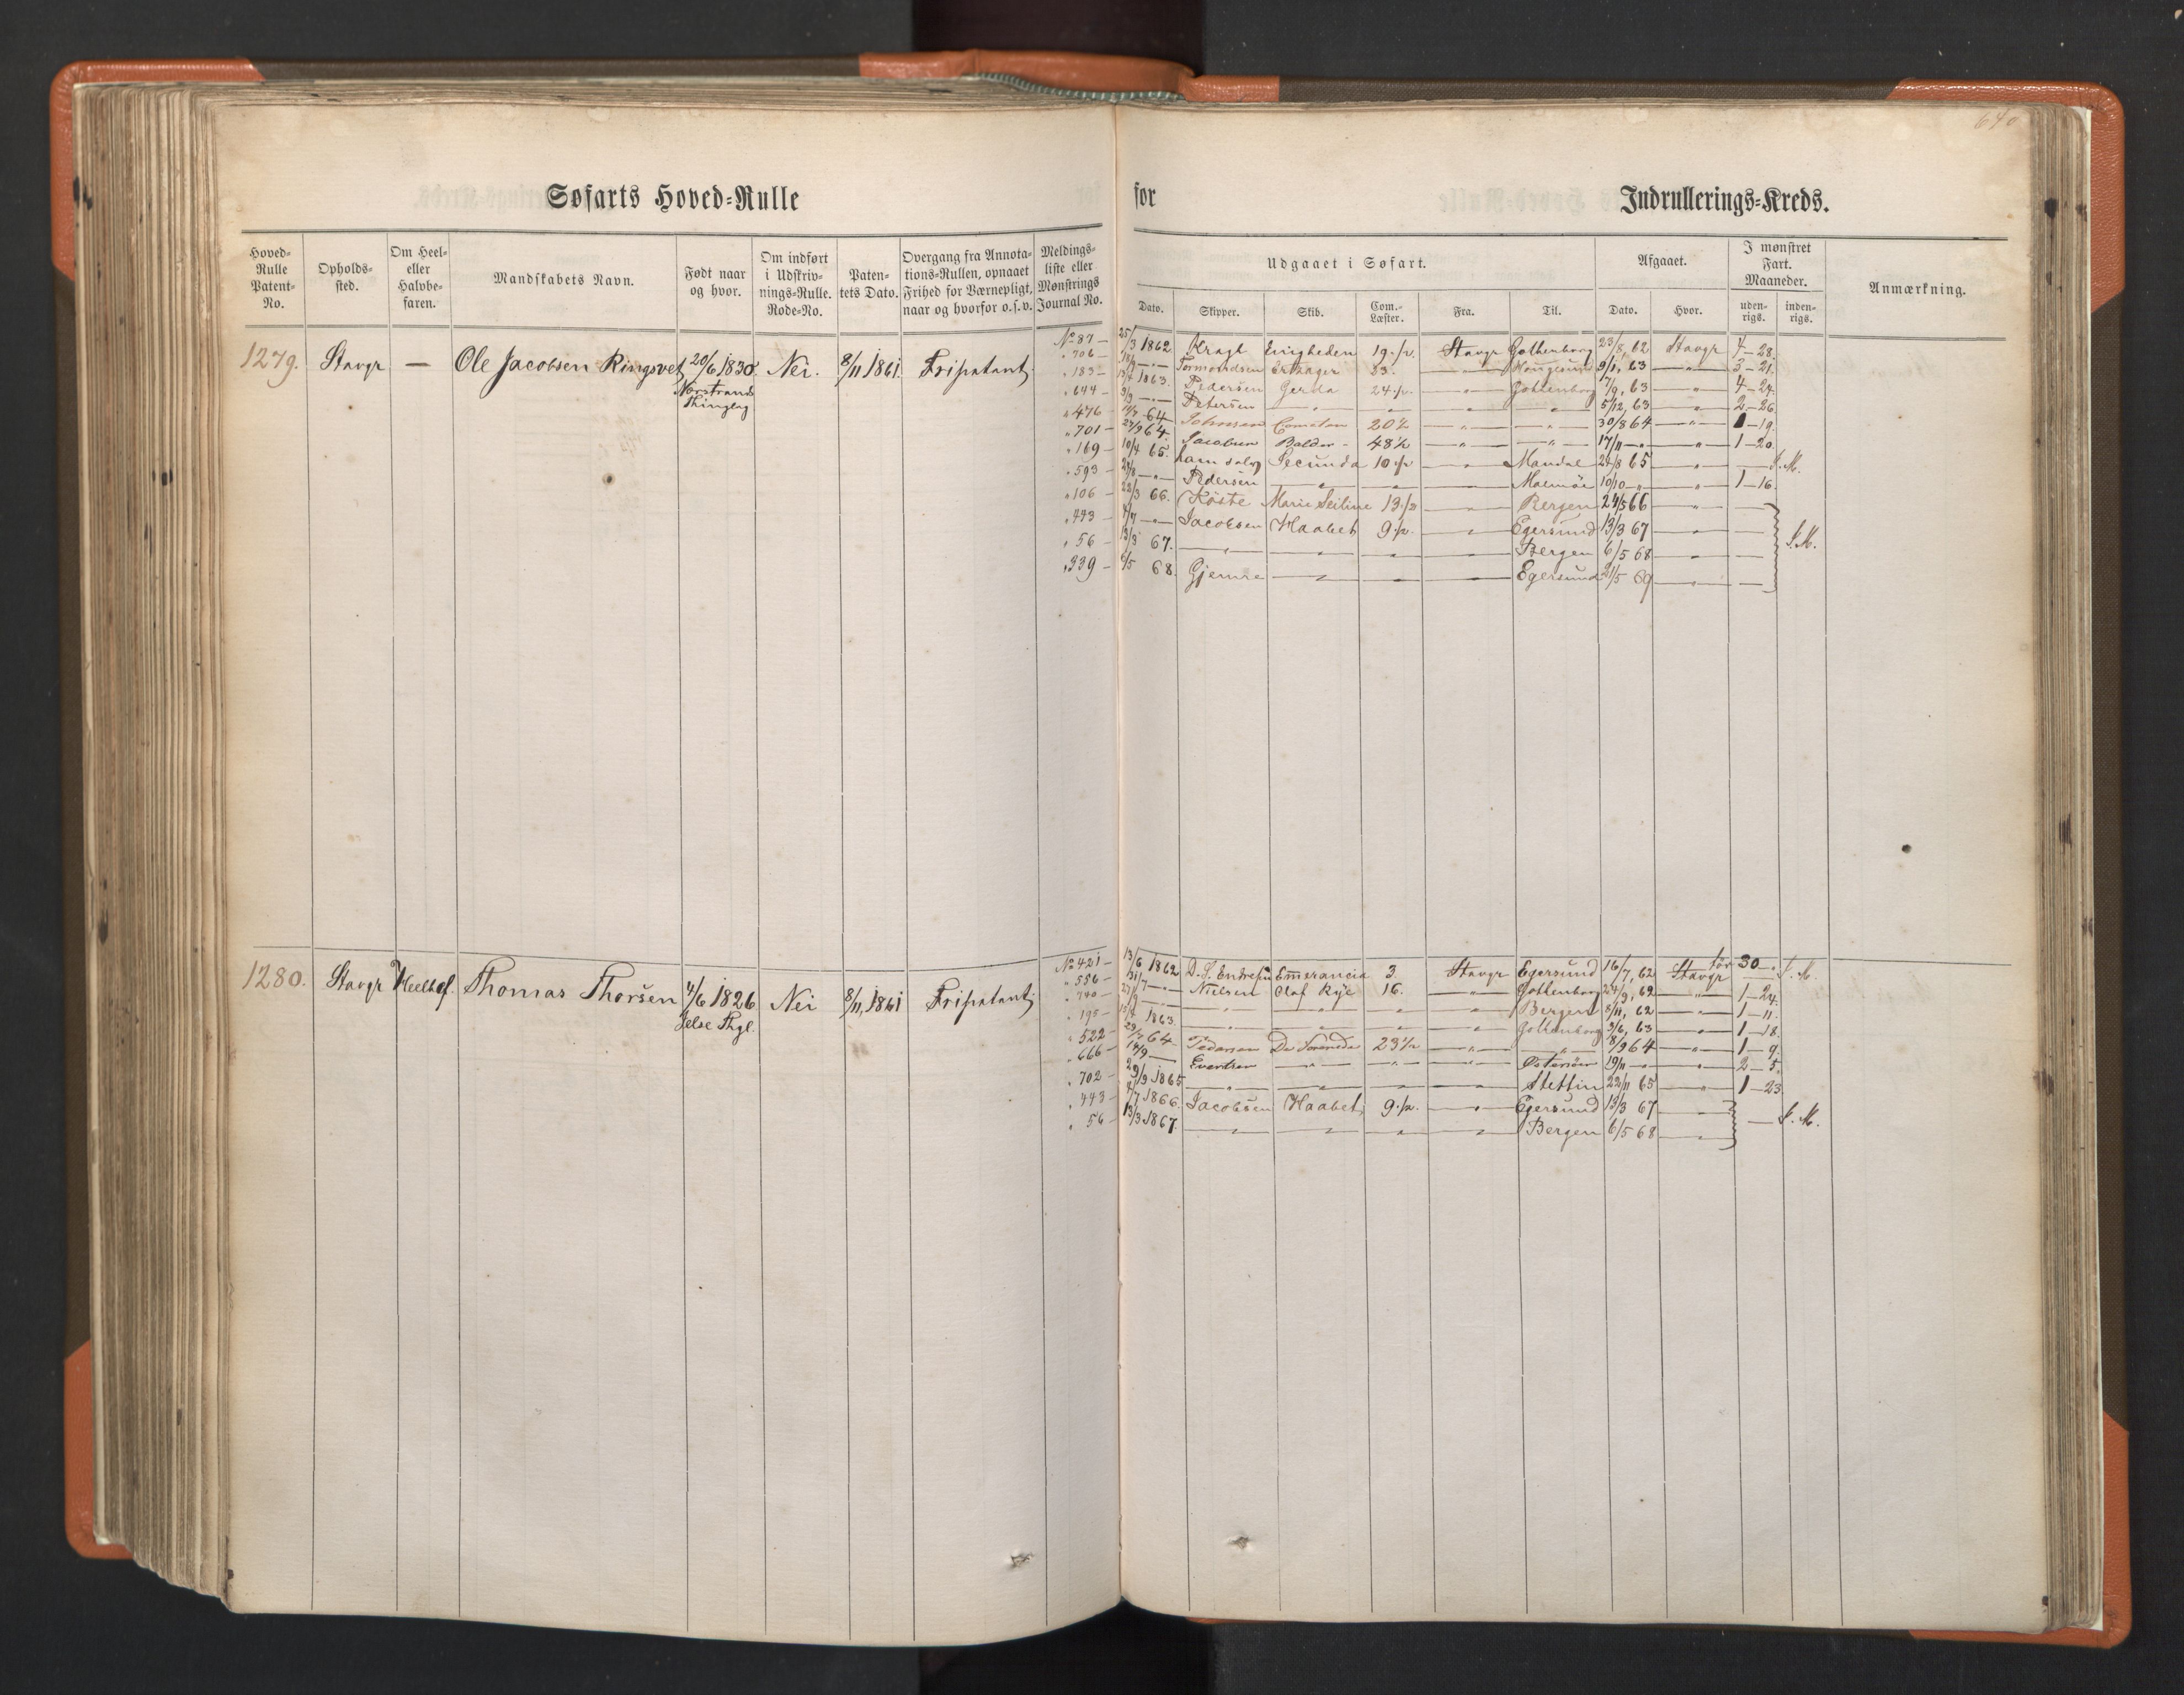 640
Søfarts Hoved-Rulle
for Indrullerings-Kreds.
Hoved-Rulle Patent-No. Opholds-sted. Om Heel- eller Halvbe-faren. Mandskabets Navn. Født naar og hvor. Om indført i Udskriv-nings-Rulle. Rode-No. Paten-tets Dato. Overgang fra Annota-tions-Rullen, opnaaet Frihed for Værnepligt, naar og hvorfor o.s.v. Meldings-liste eller Mønstrings Journal No.
Udgaaet i Søfart. Afgaaet. I mønstret Fart. Maaneder. Anmærkning.
Dato. Skipper. Skib. Com.-Læster. Fra. Til. Dato. Hvor. uden-rigs. inden-rigs.
1279. Stavgr — Ole Jacobsen Ringsvet 20/6 1830. Nei. 8/11 1861. Fripatent
Thinglag
No 87 – 25/3 1862 Kragh Enigheden 19 Stavgr Gothenborg 23/8, 62 Stavgr 4–28.
" 706 – Tormondsen 9/1, 63 " 3–21.
" 183 – 1863. Pedersen Gerda 24 " Gothenborg 17/9, 63 " 4–24.
" 644 – Petersen " " " " 5/12, 63 " 2–26.
" 476 – 64 Johnsen 20½ " " 30/8 64 " 1–19.
" 701 – 27/9 64 Jacobsen Balder 48½ " " 17/11 – " 1–20.
" 169 – 10/4 65. Secunda 10 " Mandal 24/8 65 " — I.M.
" 593 – Pedersen " " Malmöe 10/10 – " 1–16.
" 106 – 22/3 66. Köste Marie Seiline 13 " Bergen 24/5 66 " —
" 443 – 4/7 – Jacobsen Haabet 9 " Egersund 13/3 67 " — I.M.
" 56 – 13/3 67. " " " " Bergen 6/5 68 " —
" 339 – 6/5 68. Gjemre " " " Egersund 21/5 69 " —
1280. Stavgr Heelbef. Thomas Thorsen 4/6 1826 Nei 8/11, 1861 Fripatent
Jelse Thgl.
No 421 – 13/6 1862 D. S. Endresen Emerancia 3. Stavgr Egersund 16/7, 62 Stavgr for 30 – I.M.
" 556 – 31/7 – Nielsen Olaf Rye 16. " Gothenborg 24/9, 62 " 1–24.
" 740 – " " " " Bergen 8/11, 62 " 1–11.
" 195 – 1863. " " " " Gothenborg 3/6, 63 " 1–18.
" 522 – 64 Pedersen 23½ " " 8/9 64 " 1–9.
" 666 – Evertsen " " " Østerisöer 19/11 – " 2–5.
" 702 – 29/9 1865 " " " " Stettin 22/11 65 " 1–23.
" 443 – 4/7 1866. Jacobsen Haabet 9 " Egersund 13/3 67 " — I.M.
" 56 – 13/3 1867. " " " " Bergen 6/5 68 "